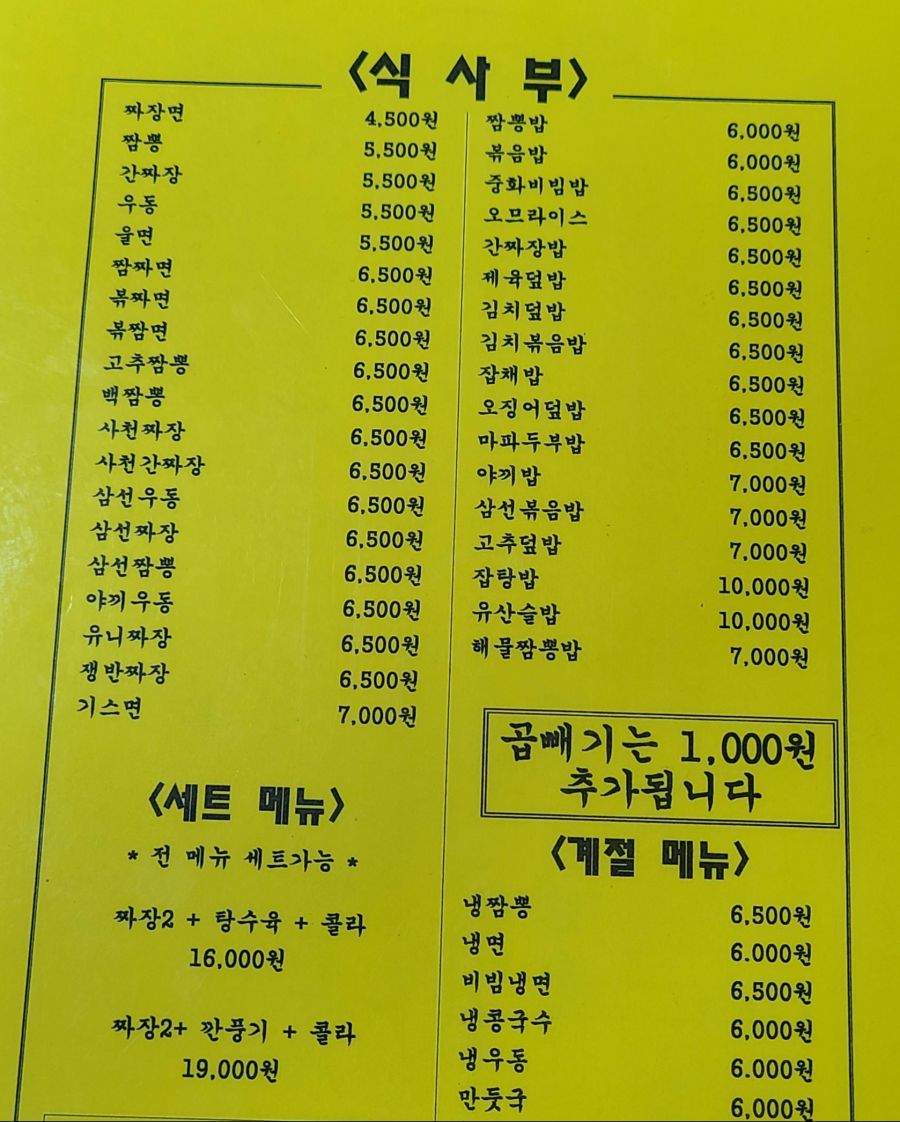 <식 사 부>
짜장면 4,500원
짬뽕 5,500원
간짜장 5,500원
우동 5,500원
울면 5,500원
짬짜면 6,500원
볶짜면 6,500원
볶짬면 6,500원
고추짬뽕 6,500원
백짬뽕 6,500원
사천짜장 6,500원
사천간짜장 6,500원
삼선우동 6,500원
삼선짜장 6,500원
삼선짬뽕 6,500원
야끼우동 6,500원
유니짜장 6,500원
쟁반짜장 6,500원
기스면 7,000원
짬뽕밥 6,000원
볶음밥 6,000원
중화비빔밥 6,500원
오므라이스 6,500원
간짜장밥 6,500원
제육덮밥 6,500원
김치덮밥 6,500원
김치볶음밥 6,500원
잡채밥 6,500원
오징어덮밥 6,500원
마파두부밥 6,500원
야끼밥 7,000원
삼선볶음밥 7,000원
고추덮밥 7,000원
잡탕밥 10,000원
유산슬밥 10,000원
해물짬뽕밥 7,000원
곱빼기는 1,000원
추가됩니다
<세트 메뉴>
* 전 메뉴 세트가능 *
짜장2 + 탕수육 + 콜라
16,000원
짜장2+ 깐풍기 + 콜라
19,000원
<계절 메뉴>
냉짬뽕 6,500원
냉면 6.000원
비빔냉면 6,500원
냉콩국수 6,000원
냉우동 6.000원
만둣국 6,000원